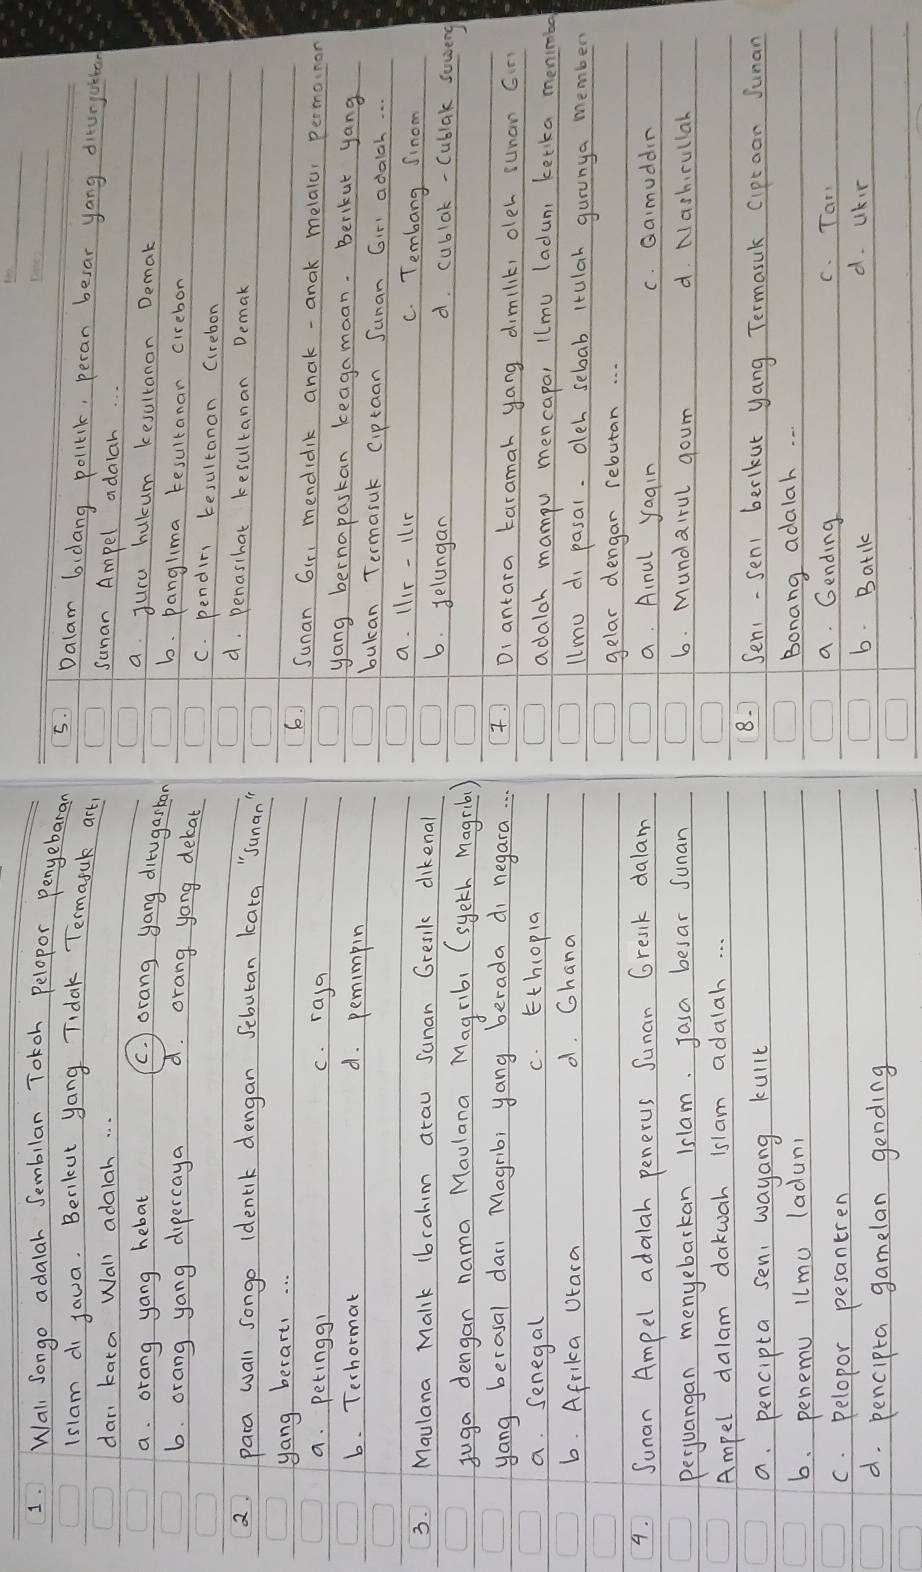 1. Wali Songo adalah Sembilan Tokoh Pelopor Penyebaran
Islam di Jawa. Berikut yang Tidak Termasuk arti
dari kata Wali adalah ...
a. orang yang hebat c. orang yang ditugaskan
b. orang yang dipercaya d. orang yang dekat
2. para wali songo identik dengan Sebutan kata "Sunan"
yang berarti ...
a. petinggi c. raja
b. Terhormat d. pemimpin
3. Maulana Malik Ibrahim atau Sunan Gresik dikenal
juga dengan nama Maulana Magribi (syekh Magribi)
yang berasal dari Magribi yang berada di negara ...
a. Senegal c. Ethiopia
b. Afrika Utara d. Ghana
4. Sunan Ampel adalah penerus Sunan Gresik dalam
perjuangan menyebarkan Islam. Jasa besar Sunan
Ampel dalam dakwah Islam adalah ...
a. pencipta seni wayang kulit
b. penemu ilmu laduni
c. pelopor pesantren
d. pencipta gamelan gending
5. Dalam bidang politik, peran besar yang ditunjukkan
Sunan Ampel adalah ...
a. juru hukum kesultanan Demak
b. panglima kesultanan cirebon
c. pendiri kesultanan Cirebon
d. penasihat kesultanan Demak
6. Sunan Giri mendidik anak - anak melalui permainan
yang bernapaskan keagamaan. Berikut yang
bukan Termasuk ciptaan Sunan Giri adalah ...
a. Ilir - Ilir c. Tembang Sinom
b. jelungan d. cublak - Cublak suweng
7. Di antara karamah yang dimiliki oleh sunan Giri
adalah mampu mencapai ilmu laduni ketika menimba
Ilmu di pasai. oleh sebab itulah gurunya memberi
gelar dengan sebutan ...
a. Ainul yaqin c. Qaimuddin
b. Mundairul qoum d. Nashirullah
8. Seni - seni berikut yang Termasuk ciptaan Sunan
Bonang adalah ...
a. Gending c. Tari
b. Batik d. Ukir